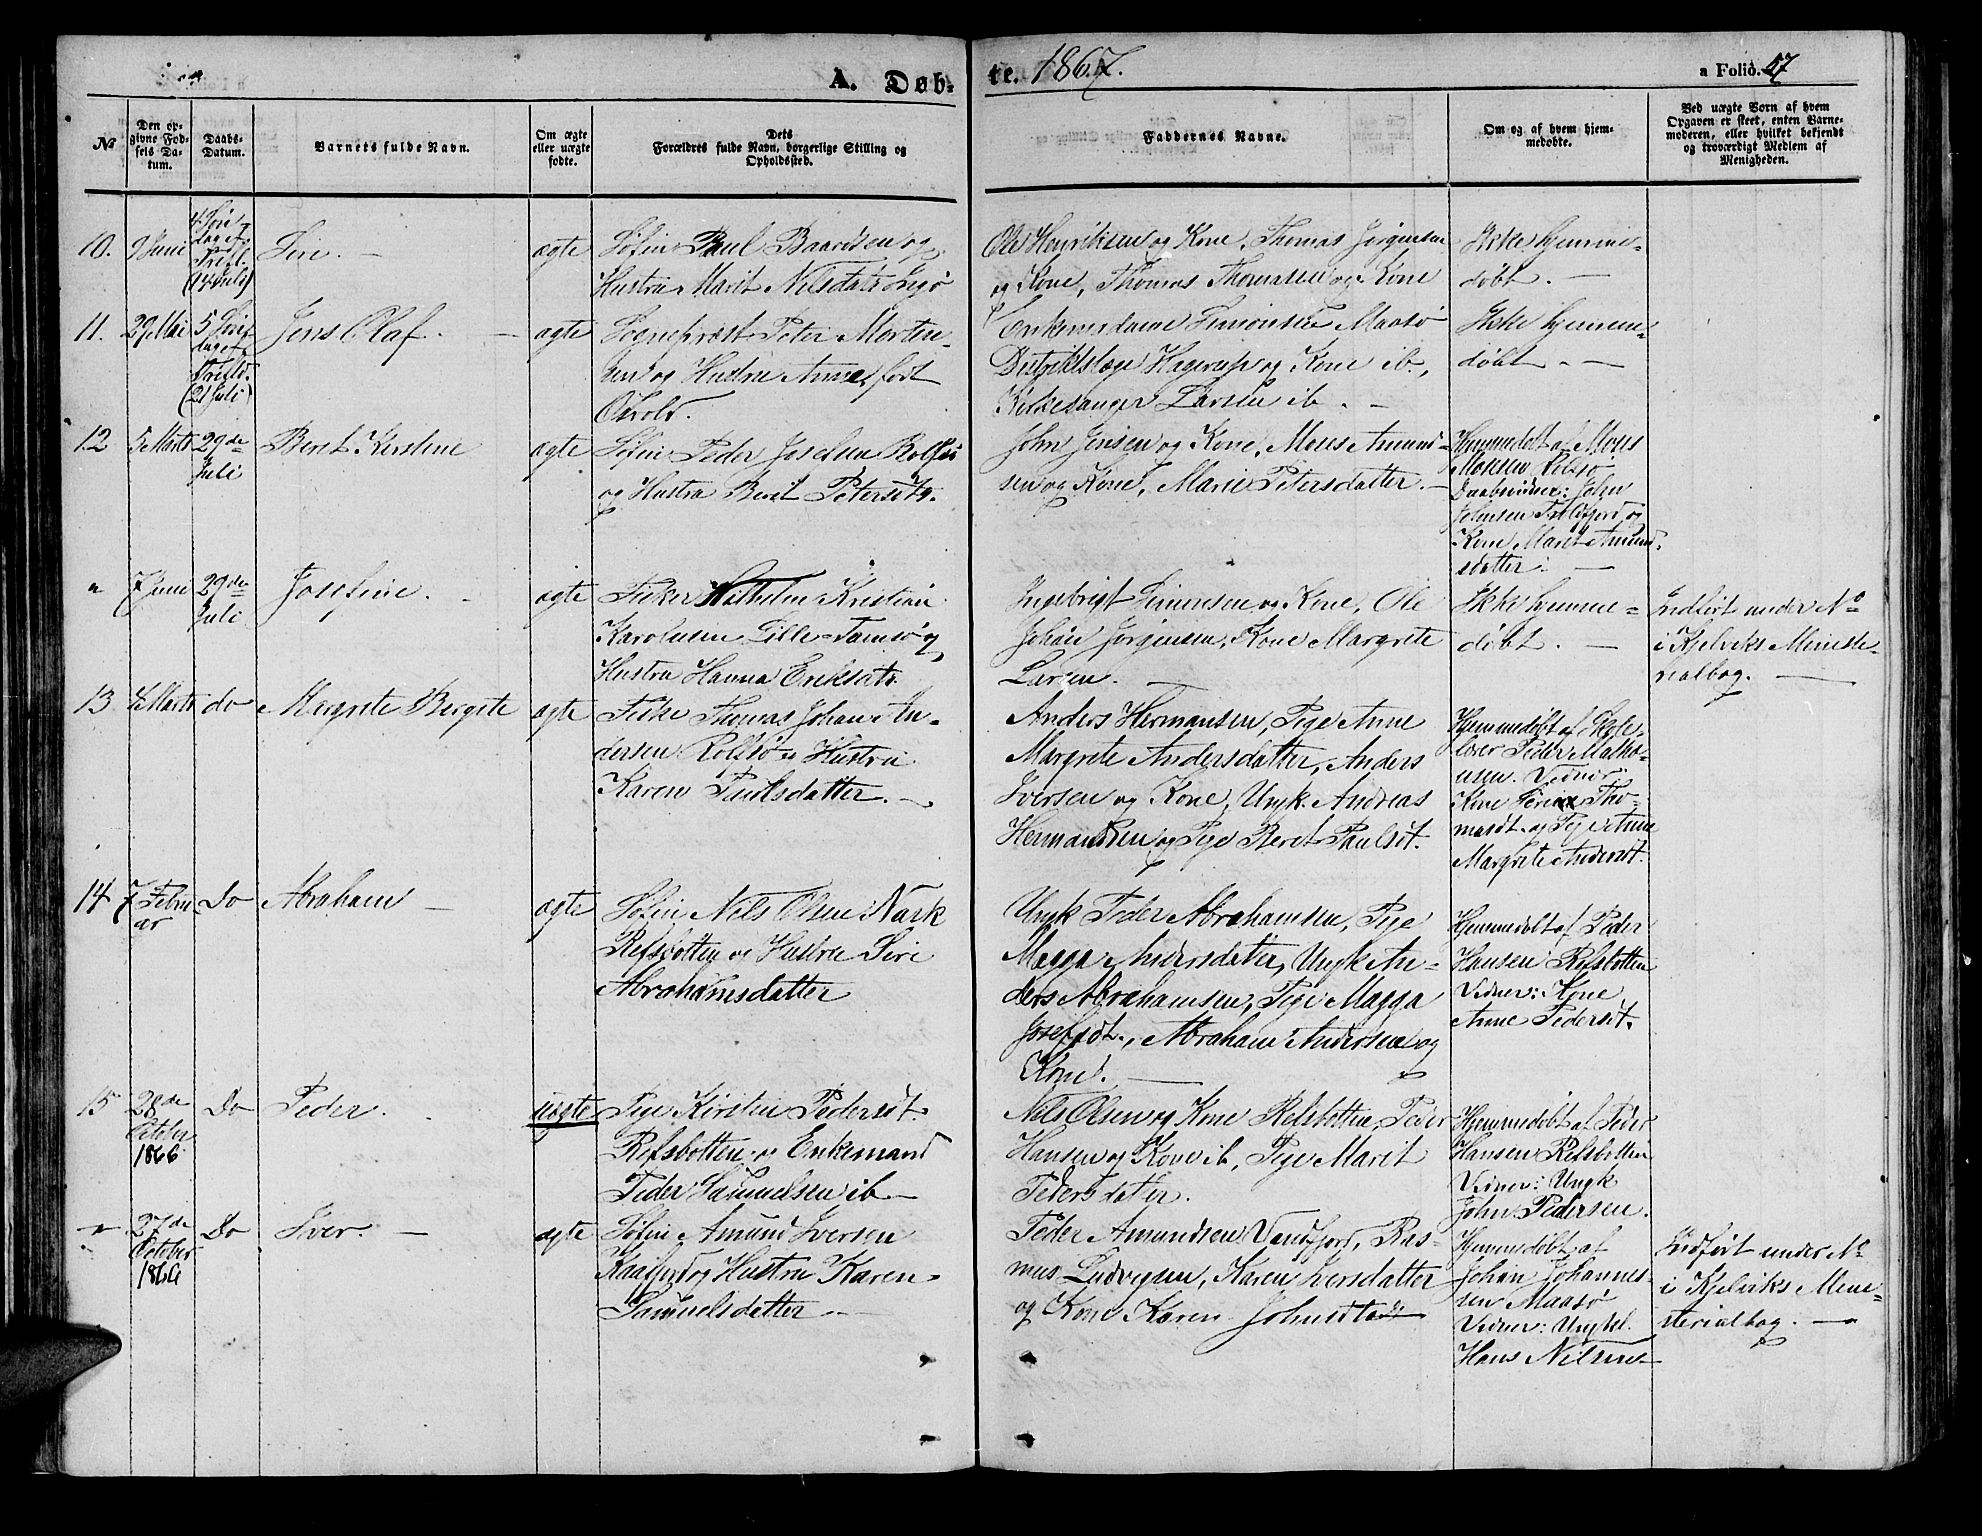 A. Døbte. 1867.
a Folio. 57
№
Den opgivne Fødsels Datum.
Daabs-Datum.
Barnets fulde Navn.
Om ægte eller uægte fødte.
Dets Forældres fulde Navn, borgerlige Stilling og Opholdssted.
Faddernes Navne.
Om og af hvem hjemmedøbte.
Ved uægte Børn af hvem Opgaven er skeet, enten Barnemoderen, eller hvilket bekjendt og troværdigt Medlem af Menigheden.
10. 9 Juni
4 Søndag ef. Trefl. (14 Juli)
Siri.
ægte
Søfin Paul Baardsen og
Hustru Marit Nilsdatr
Ole Henriksen og Kone, Thomas Jørgensen
og Kone, Thomas Thomassen og Kone
Ikke hjemme
døbt.
11. 29 Mai
5 Søndag ef. Trefld. (21 Juli)
Jens Olaf.
ægte
Sognepræst Peter Morten
og Hustru Anne, født
Enkemadame Simonsen Maasø
Distriktslæge Hagerup og Kone ib.,
Kirkesanger Larsen ib.
Ikke hjemme-
døbt.
12 5 Marts
29de Juli
Beret Kirstine
ægte
Søfin Peder Josefsen Rolfsø
og Hustru Berit Petersdtr.
John Jensen og Kone, Mons Amund-
sen og Kone, Marie Petersdatter.
Hjemmedøbt af Mons
Monsen
Daabsvidner: John
Johnsen og
Kone Maret Amund
sdatter.
" 7 Juni
29de Juli
Josefine.
ægte
Fisker Wilhelm Kristian
Karolusen Lille-Tamsø og
Hustru Hanna Eriksdtr.
Ingebrigt Simonsen og Kone, Ole
Johan Jørgensen, Kone Margrete
Larsen.
Ikke hjemme-
døbt.
Indført under No
i Kjelviks Ministe-
rialbog.
13 4 Marts do
Margrete Bergite
ægte
Fisker Thomas Johan An-
dersen Rolfsø og Hustru
Karen Paulsdatter.
Anders Hermansen, Pige Anne
Margrete Andersdatter, Anders
Iversen og Kone, Ungk. Andreas
Hermandsen og Pige Beret Paulsdt.
Hjemmedøbt af Skole-
lærer Peder Mathi-
esen. Vidner
Kone Tho-
masdt. og Pige Anne
Margrete Andersdt.
14 7 Februar Do
Abraham
ægte
Søfin Nils Olsen Nark
Refsbotten og Hustru Siri
Abrahamsdatter
Ungk Peder Abrahamsen, Pige
Magga Andersdatter, Ungk An-
ders Abrahamsen, Pige Magga
Josefsdt., Abraham Andersen og
Kone.
Hjemmedøbt af Peder
Hansen Refsbotten
Vidner: Kone
Anne Pedersdt.
15 28de October 1866 Do
Peder.
uægte
Pige Kirsten Pedersdt.
Refsbotten og Enkemand
Peder Samuelsen ib
Nils Olsen og Kone Refsbotten, Peder
Hansen og Kone ib, Pige Marit
Pedersdatter.
Hjemmedøbt af Peder
Hansen Refsbotten
Vidner: Ungk
John Pedersen.
" 27de October 1866 Do
Iver.
ægte
Søfin Amund Iversen
Kaafjord og Hustru Karen
Samuelsdatter
Peder Amundsen, Ras-
mus Ludvigsen, Karen Iversdatter
og Kone Karen
Hjemmedøbt af
Johan Johannes-
sen Maasø
Vidner: Ungkl.
Hans Nilsen
Indført under No
i Kjelviks Mini-
sterialbog.